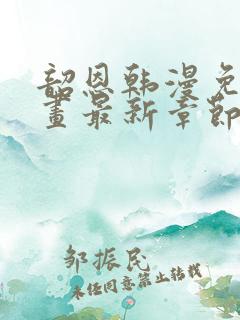 韶恩韩漫免
画最新章节
邹振民
未经同意禁止转载